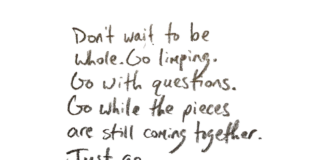 Don't wait to be
whole. Go limping.
Go with questions.
Go while the pieces
are still coming together.
Just go